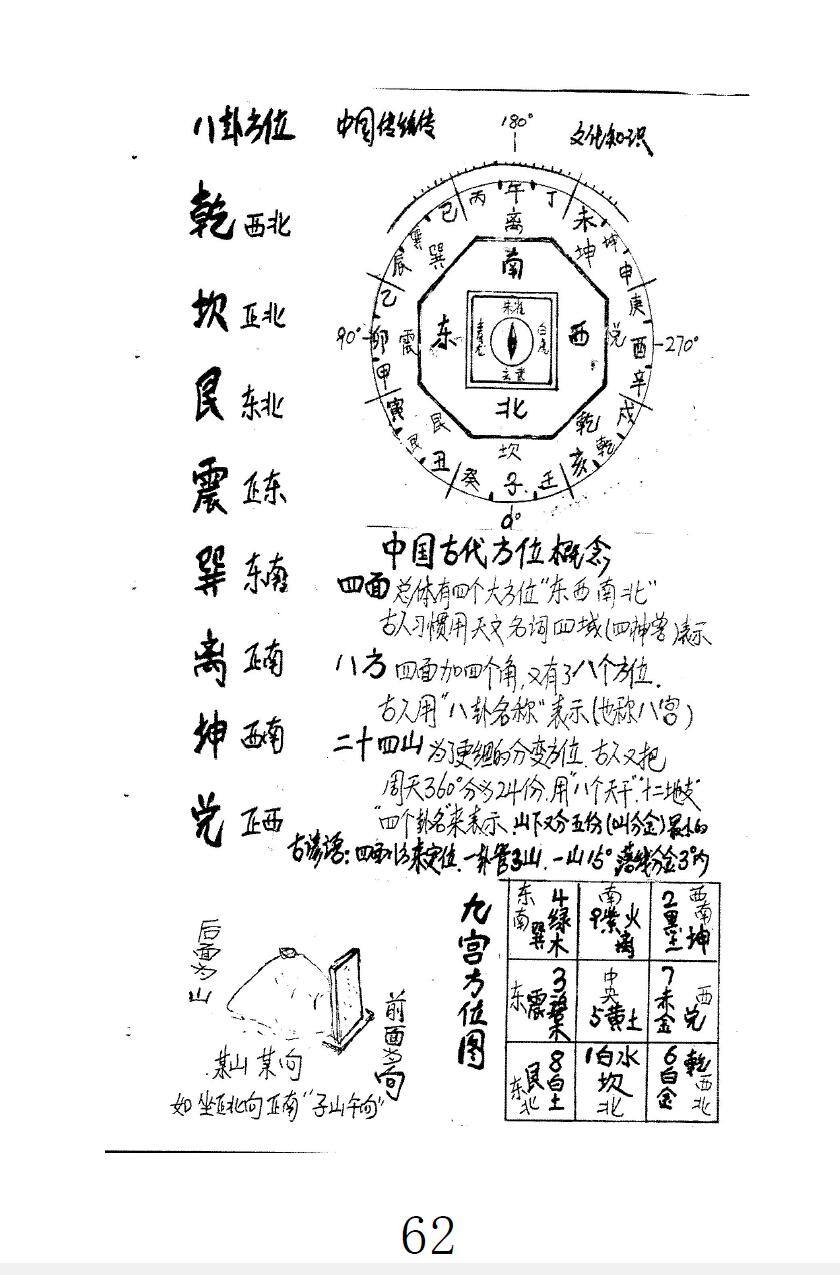 八卦方位 中国传统传 文化知识
乾 西北
坎 正北
艮 东北
震 正东
巽 东南
离 正南
坤 西南
兑 正西
180°
巳 丙 午 丁 未
巽 离 坤
辰 巽 南 坤 申
乙 朱雀 庚
90° 卯 震 东 青龙 白虎 西 兑 酉 270°
甲 玄武 辛
寅 艮 北 乾 戌
艮 丑 坎 亥 乾
癸 子 壬
0°
中国古代方位概念
四面 总体有四个大方位"东西南北"
古人习惯用天文名词四域(四神兽)表示
八方 四面加四个角,又有了八个方位.
古人用"八卦名称"表示(也称八宫)
二十四山 为了更细的分变方位.古人又把
周天360°分为24份.用"八个天干""十二地支"
"四个卦名"来表示.山下又分五份(叫分金)最小的
古谚语:四面八方来定位.一卦管3山.一山15°落线分金3°内
九宫方位图
东南 巽 4绿木
南 9紫火 离
西南 坤 2黑土
东 震 3碧木
中央 5黄土
7赤金 西 兑
东北 艮 8白土
1白水 坎 北
6白金 乾 西北
后面为山
前面为向
某山某向
如坐正北向正南"子山午向"
62